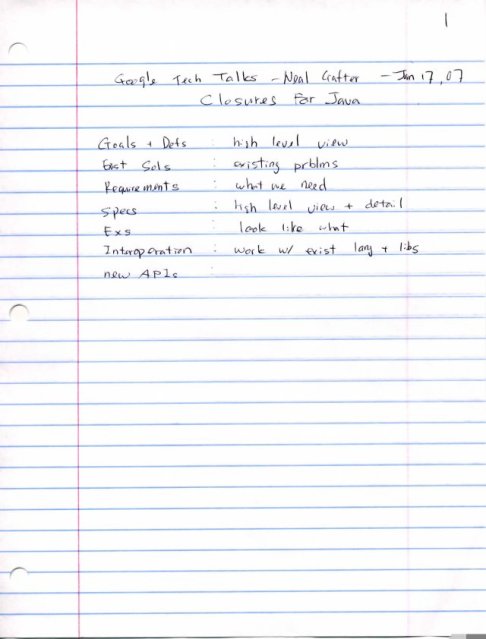 1
Google Tech Talks - Neal Gafter - Jan 17, 07
Closures For Java
Goals + Defs : high level view
Exist Sols : existing prblms
Requirements : what we need
Specs : high level view + detail
Exs : look like what
Interoperation : work w/ exist lang + libs
new APIs :